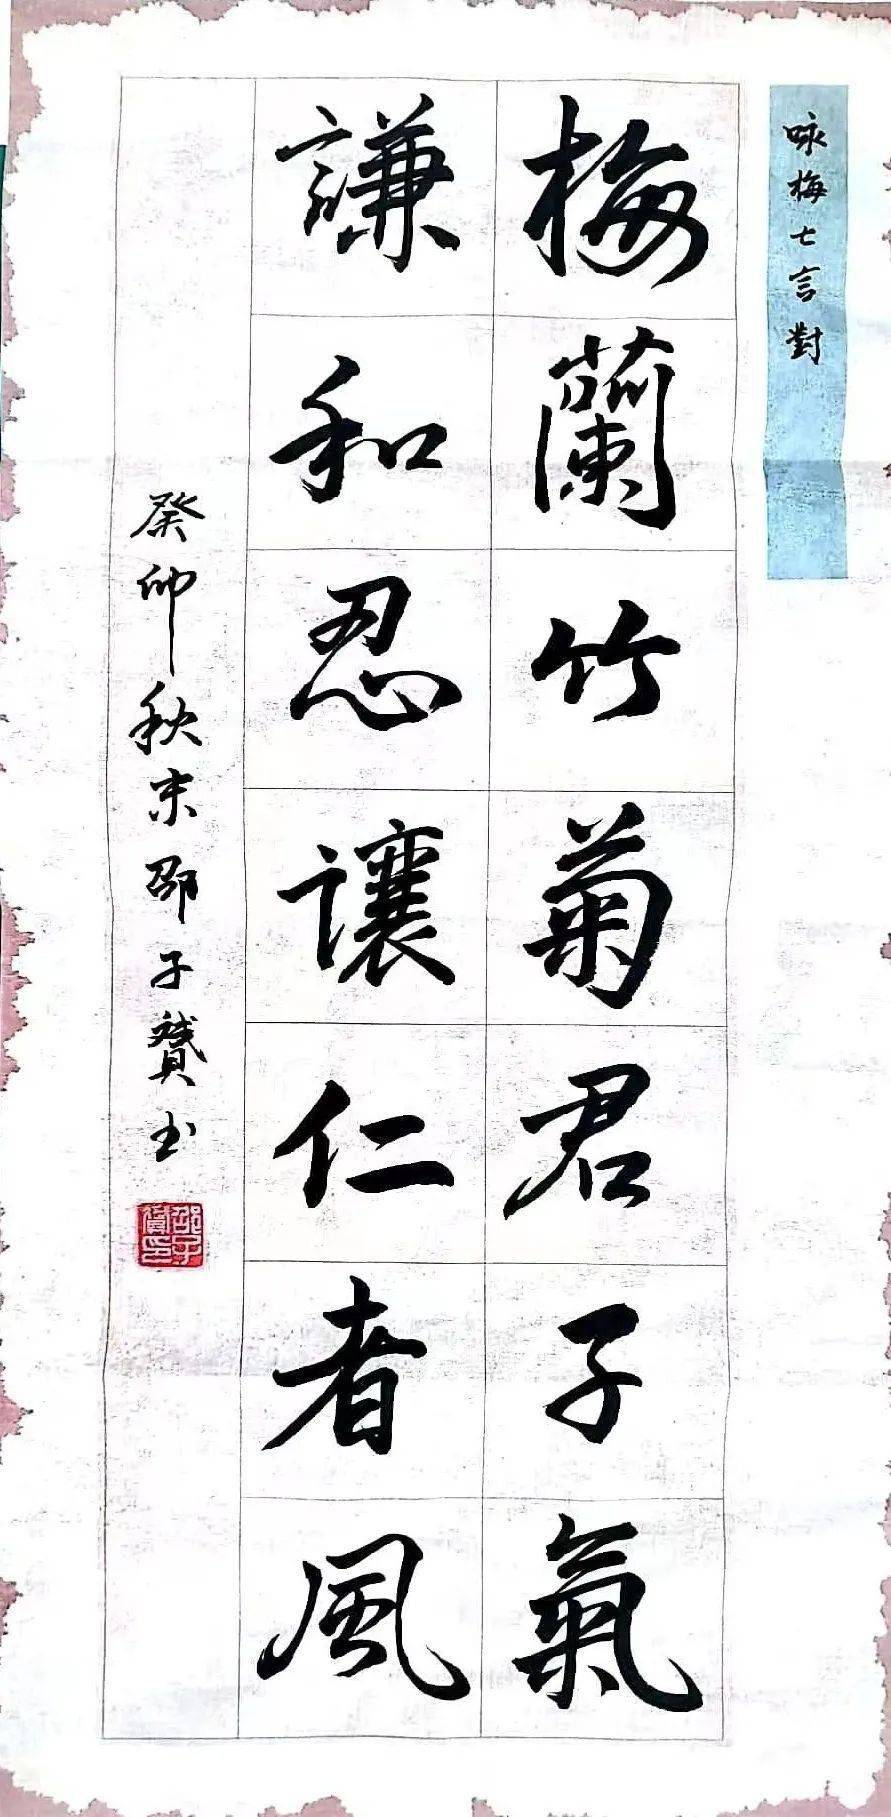 咏梅七言對
梅蘭竹菊君子氣
謙和忍讓仁者風
癸卯秋末邵子贇书
邵子贇印